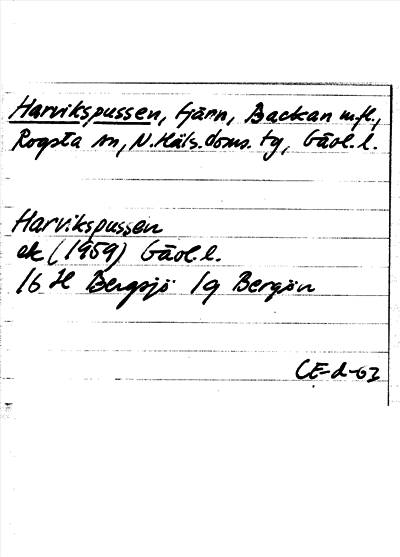 Harvikspussen, tjärn, Backan m.fl.,
Rogsta sn, N.Häls.doms. tg, Gävl. l.
Harvikspussen
ek (1959) Gävl. l.
16 H Bergsjö 1g Bergön
CE-d-63